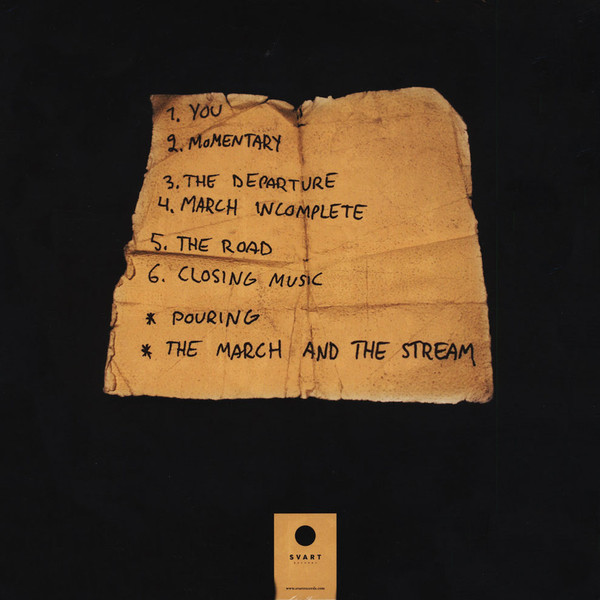 1. YOU
2. MOMENTARY
3. THE DEPARTURE
4. MARCH INCOMPLETE
5. THE ROAD
6. CLOSING MUSIC
* POURING
* THE MARCH AND THE STREAM
SVART
RECORDS
www.svartrecords.com